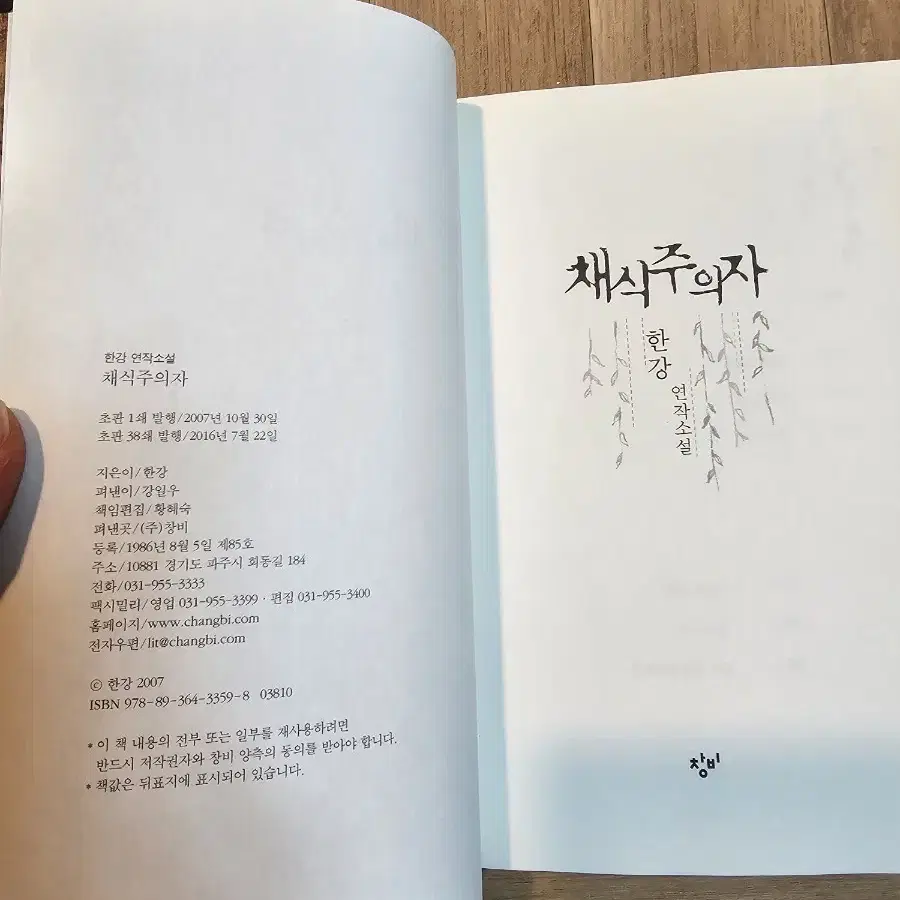 한강 연작소설
채식주의자
초판 1쇄 발행/2007년 10월 30일
초판 38쇄 발행/2016년 7월 22일
지은이/한강
펴낸이/강일우
책임편집/황혜숙
펴낸곳/(주)창비
등록/1986년 8월 5일 제85호
주소/10881 경기도 파주시 회동길 184
전화/031-955-3333
팩시밀리/영업 031-955-3399 · 편집 031-955-3400
홈페이지/www.changbi.com
전자우편/lit@changbi.com
© 한강 2007
ISBN 978-89-364-3359-8 03810
* 이 책 내용의 전부 또는 일부를 재사용하려면
반드시 저작권자와 창비 양측의 동의를 받아야 합니다.
* 책값은 뒤표지에 표시되어 있습니다.
채식주의자
한강
연작소설
창비